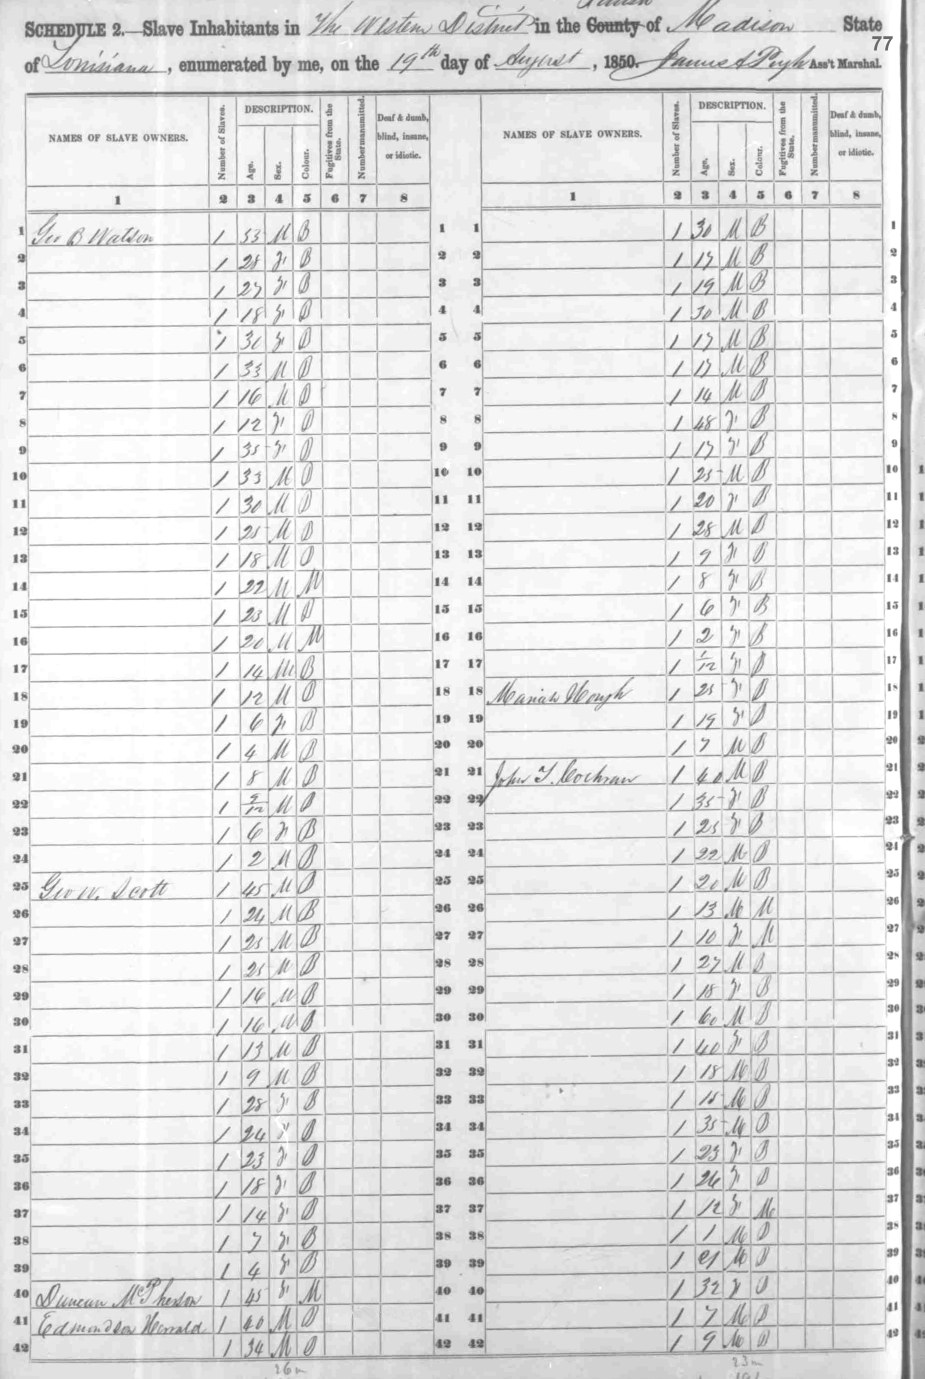 Parish
SCHEDULE 2.—Slave Inhabitants in The Western District in the County of Madison State
77
of Louisiana, enumerated by me, on the 19th day of August, 1850. James A Pugh Ass't Marshal.
NAMES OF SLAVE OWNERS. Number of Slaves. DESCRIPTION. Age. Sex. Colour. Fugitives from the State. Number manumitted. Deaf & dumb, blind, insane, or idiotic. NAMES OF SLAVE OWNERS. Number of Slaves. DESCRIPTION. Age. Sex. Colour. Fugitives from the State. Number manumitted. Deaf & dumb, blind, insane, or idiotic.
1 2 3 4 5 6 7 8 1 2 3 4 5 6 7 8
1 Geo B Watson 1 53 M B 1 1 1 30 M B 1
2 1 28 F B 2 2 1 17 M B 2
3 1 27 F B 3 3 1 19 M B 3
4 1 18 F B 4 4 1 30 M B 4
5 1 30 F B 5 5 1 17 M B 5
6 1 33 M B 6 6 1 17 M B 6
7 1 16 M B 7 7 1 14 M B 7
8 1 12 F B 8 8 1 48 F B 8
9 1 35 F B 9 9 1 17 F B 9
10 1 33 M B 10 10 1 25 M B 10
11 1 30 M B 11 11 1 20 F B 11
12 1 25 M B 12 12 1 28 M B 12
13 1 18 M B 13 13 1 9 F B 13
14 1 22 M M 14 14 1 8 F B 14
15 1 23 M B 15 15 1 6 F B 15
16 1 20 M M 16 16 1 2 F B 16
17 1 14 M B 17 17 1 1/12 F B 17
18 1 12 M B 18 18 Mariah Hough 1 25 F B 18
19 1 6 F B 19 19 1 19 F B 19
20 1 4 M B 20 20 1 7 M B 20
21 1 8 M B 21 21 John T. Cochran 1 40 M B 21
22 1 /12 M B 22 22 1 35 F B 22
23 1 6 F B 23 23 1 25 F B 23
24 1 2 M B 24 24 1 22 M B 24
25 Geo W. Scott 1 45 M B 25 25 1 20 M B 25
26 1 24 M B 26 26 1 13 M M 26
27 1 25 M B 27 27 1 10 F M 27
28 1 25 M B 28 28 1 27 M B 28
29 1 16 M B 29 29 1 18 F B 29
30 1 16 M B 30 30 1 60 M B 30
31 1 13 M B 31 31 1 40 F B 31
32 1 9 M B 32 32 1 18 M B 32
33 1 28 F B 33 33 1 15 M B 33
34 1 24 F B 34 34 1 35 M B 34
35 1 23 F B 35 35 1 23 F B 35
36 1 18 F B 36 36 1 26 F B 36
37 1 14 F B 37 37 1 12 F M 37
38 1 7 F B 38 38 1 1 M B 38
39 1 4 F B 39 39 1 M B 39
40 Duncan McPherson 1 45 F M 40 40 1 32 F B 40
41 Edmondson Herrald 1 40 M B 41 41 1 7 M B 41
42 1 34 M B 42 42 1 9 M B 42
26 m 23 m